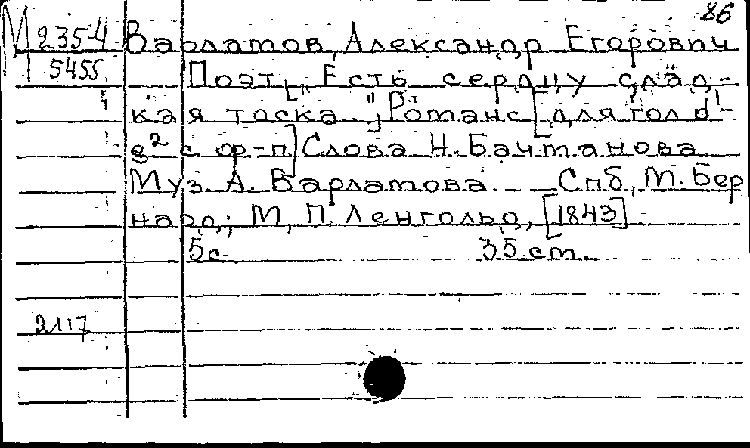 86
М 235-4 Варламов, Александр Егорович
5455 Поэт. [„Есть сердцу слад-
кая тоска..."] Романс [для гол. d¹-
e² с ф-п] Слова Н. Бахтанова
Муз. А. Варламова. Спб, М. Бер
нард; М, П. Ленгольд, [1843]
5с 35 cm.
2117